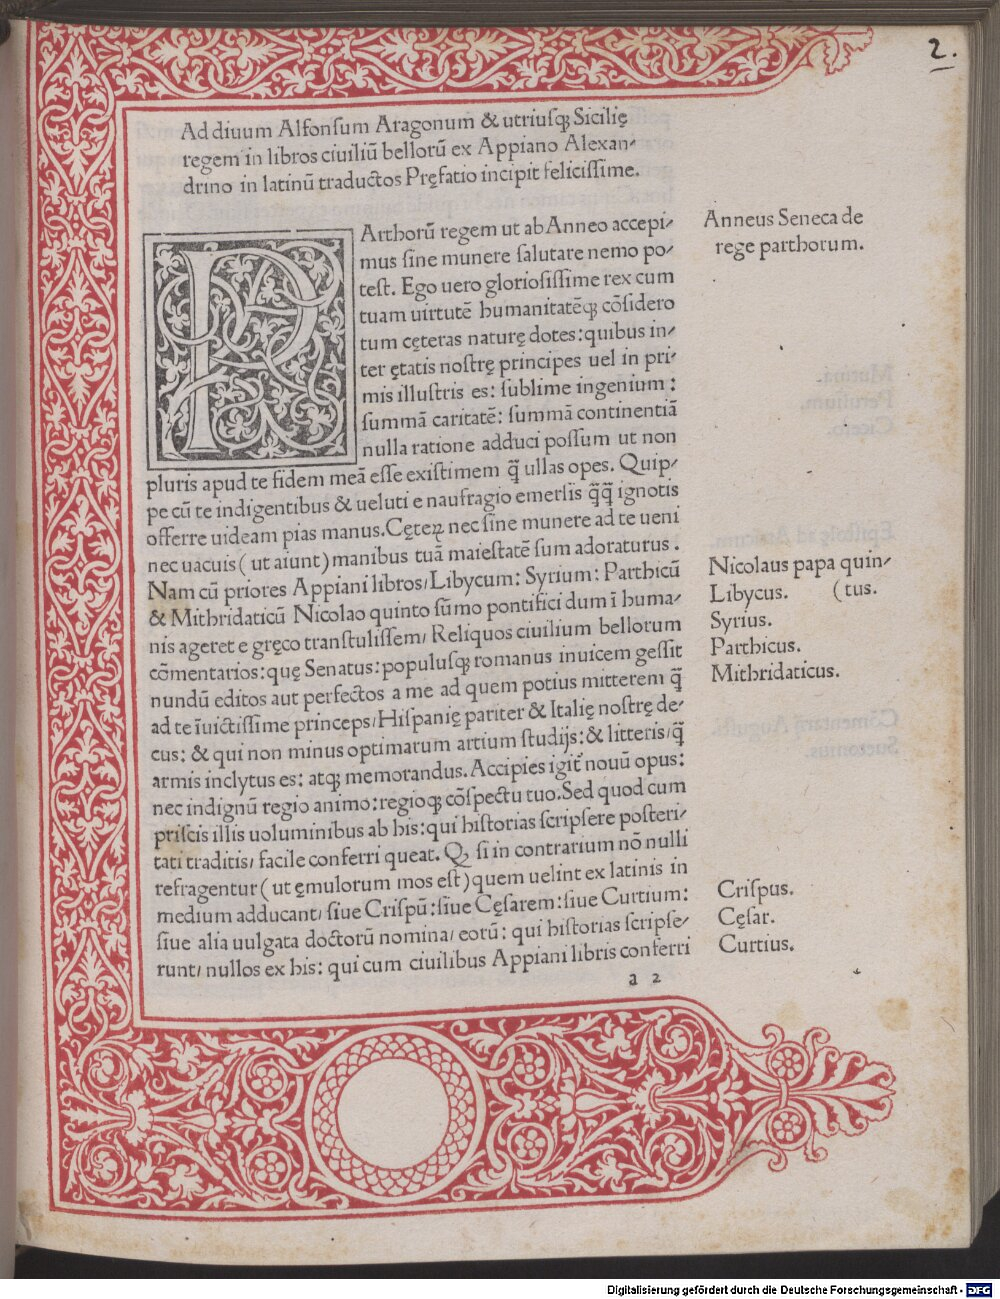 2.
Ad diuum Alfonsum Aragonum & utriusqꝫ Sicilię
regem in libros ciuiliū bellorū ex Appiano Alexan⸗
drino in latinū traductos Pręfatio incipit felicissime.
PArthorū regem ut ab Anneo accepi⸗
mus sine munere salutare nemo po⸗
test. Ego uero gloriosissime rex cum
tuam uirtutē humanitatēqꝫ cōsidero
tum cęteras naturę dotes: quibus in⸗
ter ętatis nostrę principes uel in pri⸗
mis illustris es: sublime ingenium:
summā caritatē: summā continentiā
nulla ratione adduci possum ut non
pluris apud te fidem meā esse existimem q̃ ullas opes. Quip⸗
pe cū te indigentibus & ueluti e naufragio emersis q̃q̃ ignotis
offerre uideam pias manus. Cęteꝝ nec sine munere ad te ueni
nec uacuis (ut aiunt) manibus tuā maiestatē sum adoraturus.
Nam cū priores Appiani libros/ Libycum: Syrium: Parthicū
& Mithridaticū Nicolao quinto sūmo pontifici dum ī huma⸗
nis ageret e gręco transtulissem/ Reliquos ciuilium bellorum
cōmentarios: quę Senatus: populusqꝫ romanus inuicem gessit
nundū editos aut perfectos a me ad quem potius mitterem q̃
ad te īuictissime princeps/ Hispanię pariter & Italię nostrę de⸗
cus: & qui non minus optimarum artium studijs: & litteris/ q̃
armis inclytus es: atqꝫ memorandus. Accipies igit᷑ nouū opus:
nec indignū regio animo: regioqꝫ cōspectu tuo. Sed quod cum
priscis illis uoluminibus ab his: qui historias scripsere posteri⸗
tati traditis/ facile conferri queat. Qꝫ si in contrarium nō nulli
refragentur (ut ęmulorum mos est) quem uelint ex latinis in
medium adducant/ siue Crispū: siue Cęsarem: siue Curtium:
siue alia uulgata doctorū nomina/ eorū: qui historias scripse⸗
runt/ nullos ex his: qui cum ciuilibus Appiani libris conferri
a 2
Anneus Seneca de
rege parthorum.
Nicolaus papa quin⸗
Libycus. (tus.
Syrius.
Parthicus.
Mithridaticus.
Crispus.
Cęsar.
Curtius.
Digitalisierung gefördert durch die Deutsche Forschungsgemeinschaft - DFG